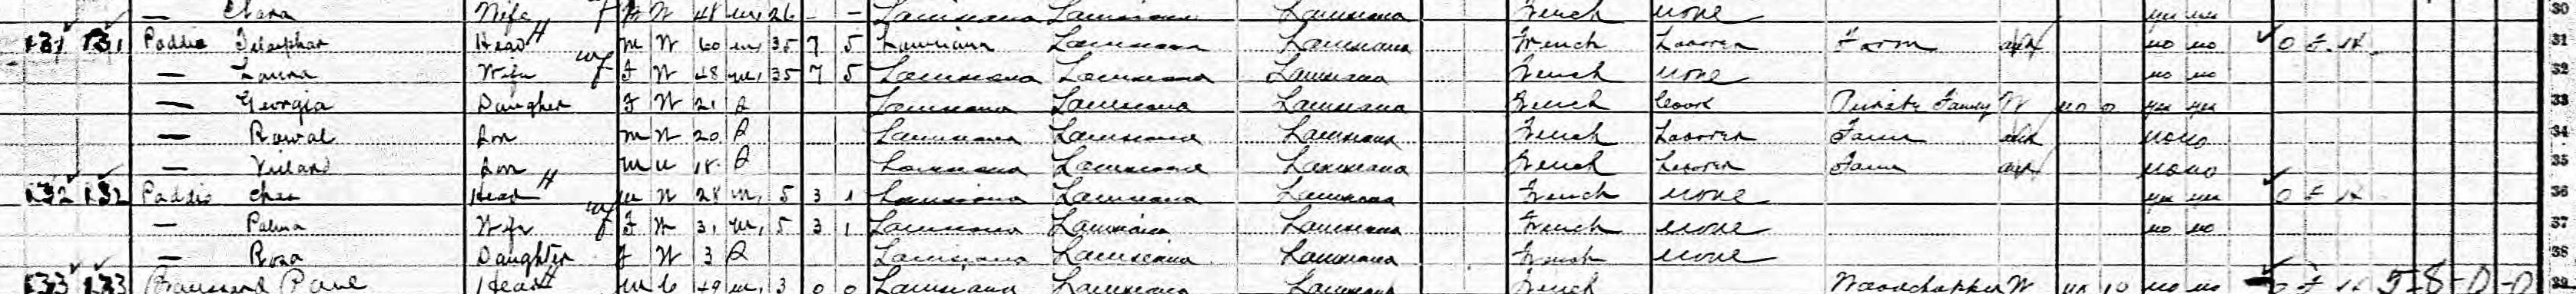 Clara Wife F W 48 M1 26 - - Louisiana Louisiana Louisiana French none yes yes 30
131 131 Paddio Telesphar Head M W 60 M1 35 7 5 Louisiana Louisiana Louisiana French Laborer Farm no no O F H 31
— Laura Wife F W 48 M1 35 7 5 Louisiana Louisiana Louisiana French none no no 32
— Georgia Daughter F W 21 S Louisiana Louisiana Louisiana French Cook Private Family W no 0 yes yes 33
— Rawal Son M W 20 S Louisiana Louisiana Louisiana French Laborer Farm no no 34
— Son M W 18 S Louisiana Louisiana Louisiana French Laborer Farm no no 35
132 132 Paddio Chas Head M W 28 M1 5 3 1 Louisiana Louisiana Louisiana French none yes yes O F H 36
— Palma Wife F W 31 M1 5 3 1 Louisiana Louisiana Louisiana French none no no 37
— Rosa Daughter F W 3 S Louisiana Louisiana Louisiana French none 38
133 133 Broussard Head M 49 M1 3 0 0 Louisiana Louisiana Louisiana French Woodchopper W no 10 no no O F H 5-8-0-0 39